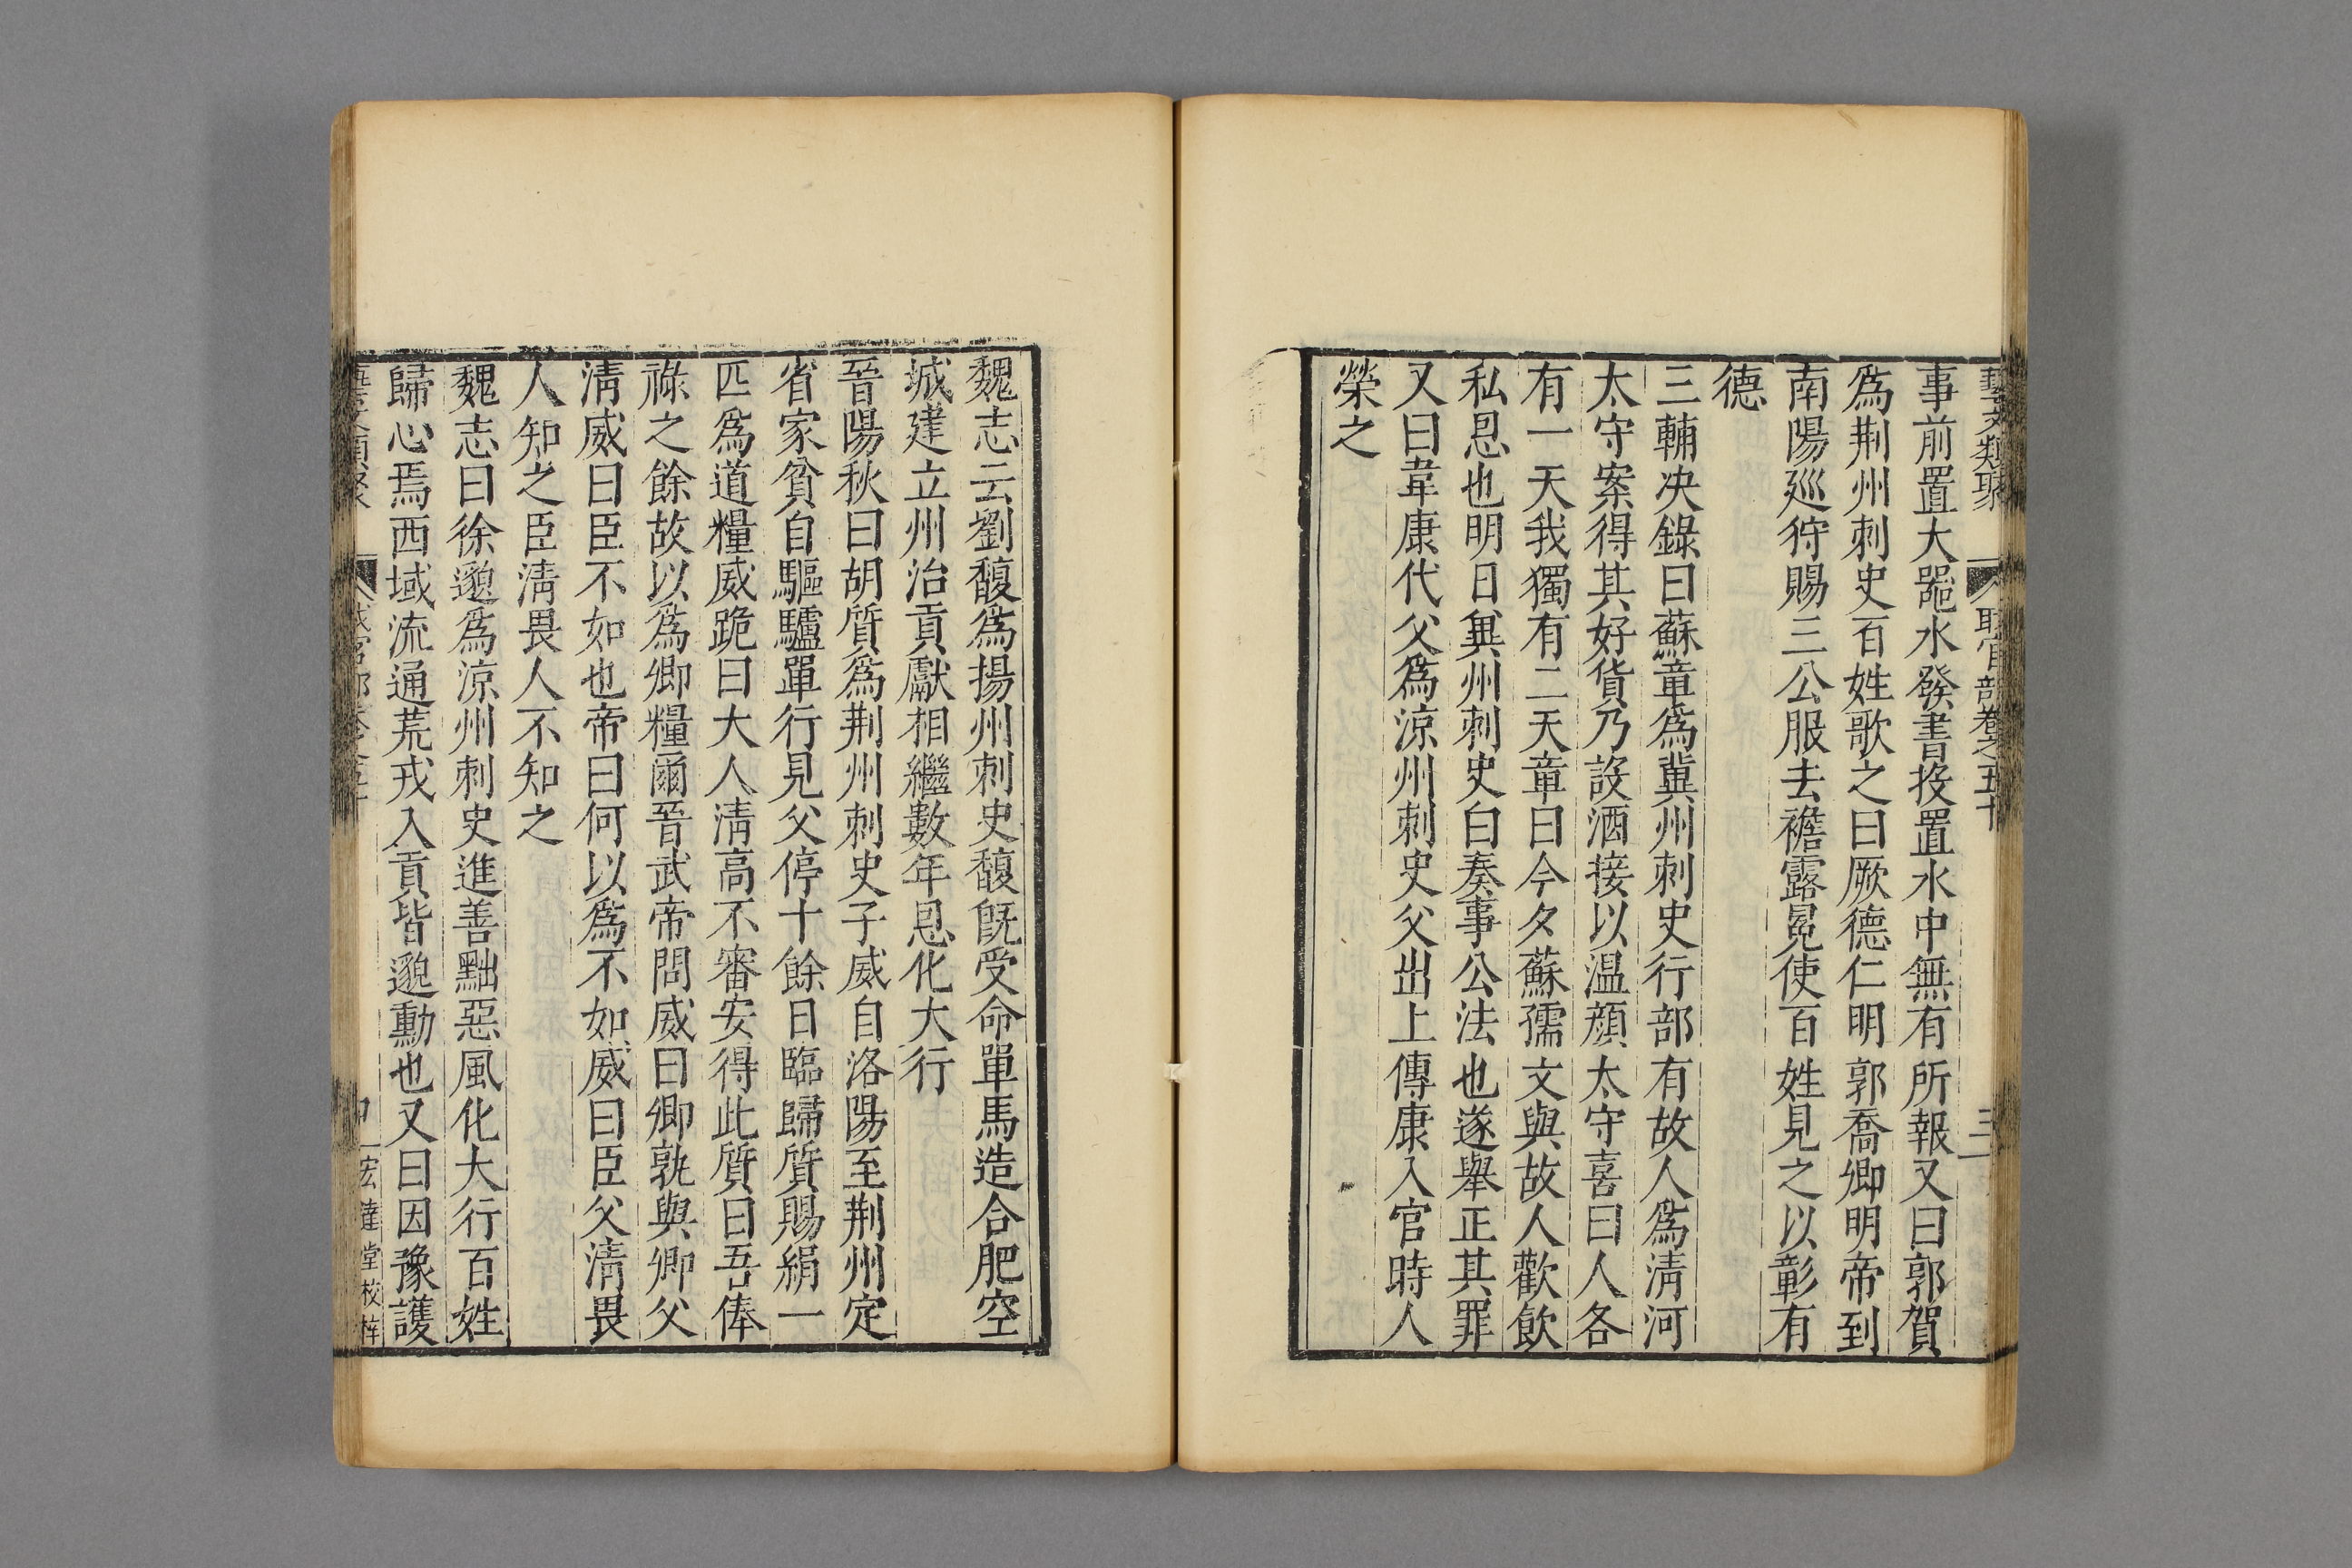 藝文類聚 職官部卷之五十 三
事前置大器水發書投置水中無有所報又曰郭賀
爲荆州刺史百姓歌之曰厥德仁明郭喬卿明帝到
南陽廵狩賜三公服去襜露冕使百姓見之以彰有
德
三輔决錄曰蘇章爲冀州刺史行部有故人爲淸河
太守案得其好貨乃設酒接以温顔太守喜曰人各
有一天我獨有二天章曰今夕蘇孺文與故人歡飲
私恩也明日兾州刺史白奏事公法也遂舉正其罪
又曰韋康代父爲涼州刺史父出上傳康入官時人
榮之
魏志云劉馥爲揚州刺史馥旣受命單馬造合肥空
城建立州治貢獻相繼數年恩化大行
晉陽秋曰胡質爲荆州刺史子威自洛陽至荆州定
省家貧自驅驢單行見父停十餘日臨歸質賜絹一
匹爲道糧威跪曰大人淸高不審安得此質曰吾俸
祿之餘故以爲卿糧爾晉武帝問威曰卿孰與卿父
淸威曰臣不如也帝曰何以爲不如威曰臣父淸畏
人知之臣淸畏人不知之
魏志曰徐邈爲涼州刺史進善黜惡風化大行百姓
歸心焉西域流通荒戎入貢皆邈勳也又曰因豫護
宏達堂校梓